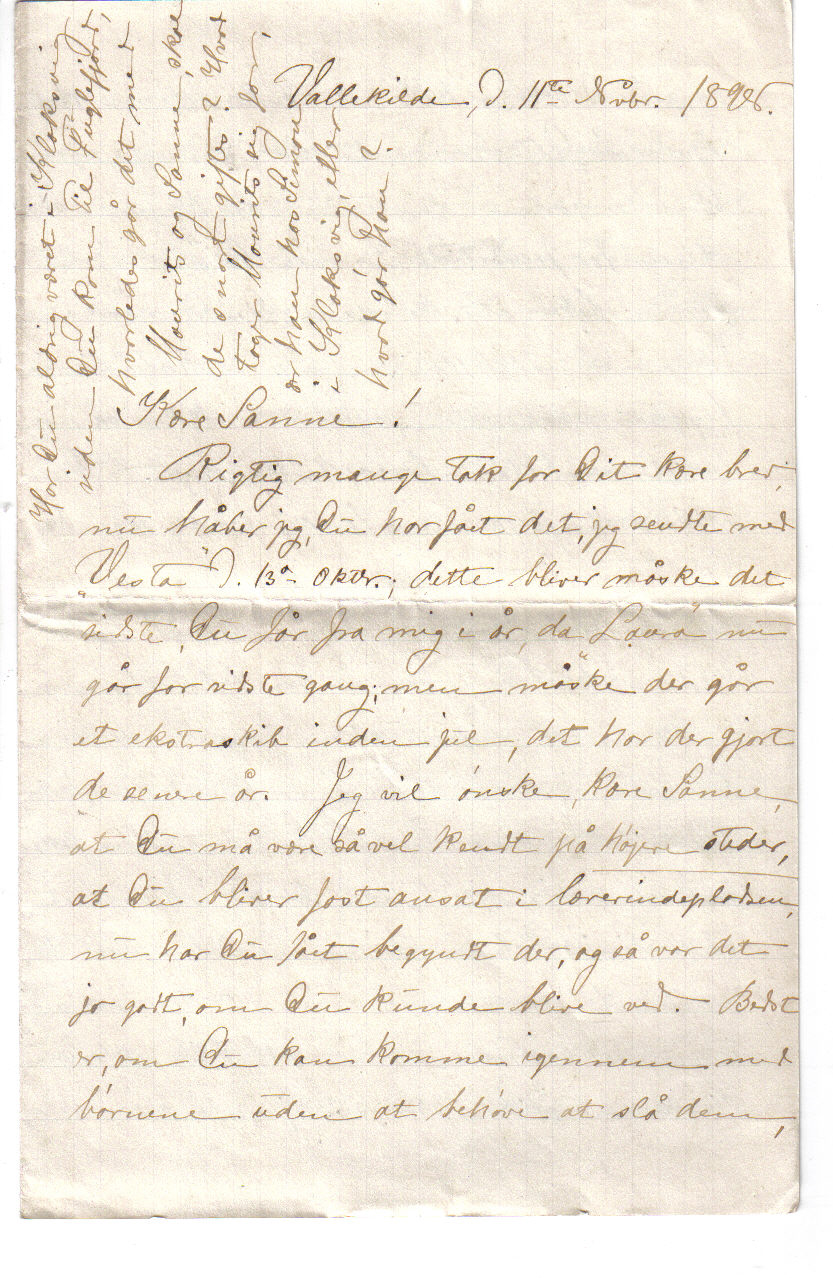 Vallekilde, d. 11te Novbr. 1898.
Kære Sanne!
Rigtig mange tak for Dit kære brev,
nu håber jeg, Du har fået det, jeg sendte med
"Vesta" d. 13de Oktbr.; dette bliver måske det
sidste, Du får fra mig i år, da "Laura" nu
går for sidste gang; men måske der går
et ekstraskib inden jul, det har der gjort
de senere år. Jeg vil ønske, kære Sanne,
at Du må være så vel kendt på højere steder,
at Du bliver fast ansat i lærerindepladsen,
nu har Du fået begyndt der, og så var det
jo godt, om Du kunde blive ved. Bedst
er, om Du kan komme igennem med
børnene uden at behøve at slå dem,
Har Du aldrig været i Klaksvig
siden Du kom til Fuglefjord,
hvorledes går det med
Mourits og Sanne, skal
de snart giftes? Hvad
tager Mourits sig for,
er han hos Simon
i Klaksvig, eller
hvad gør han?